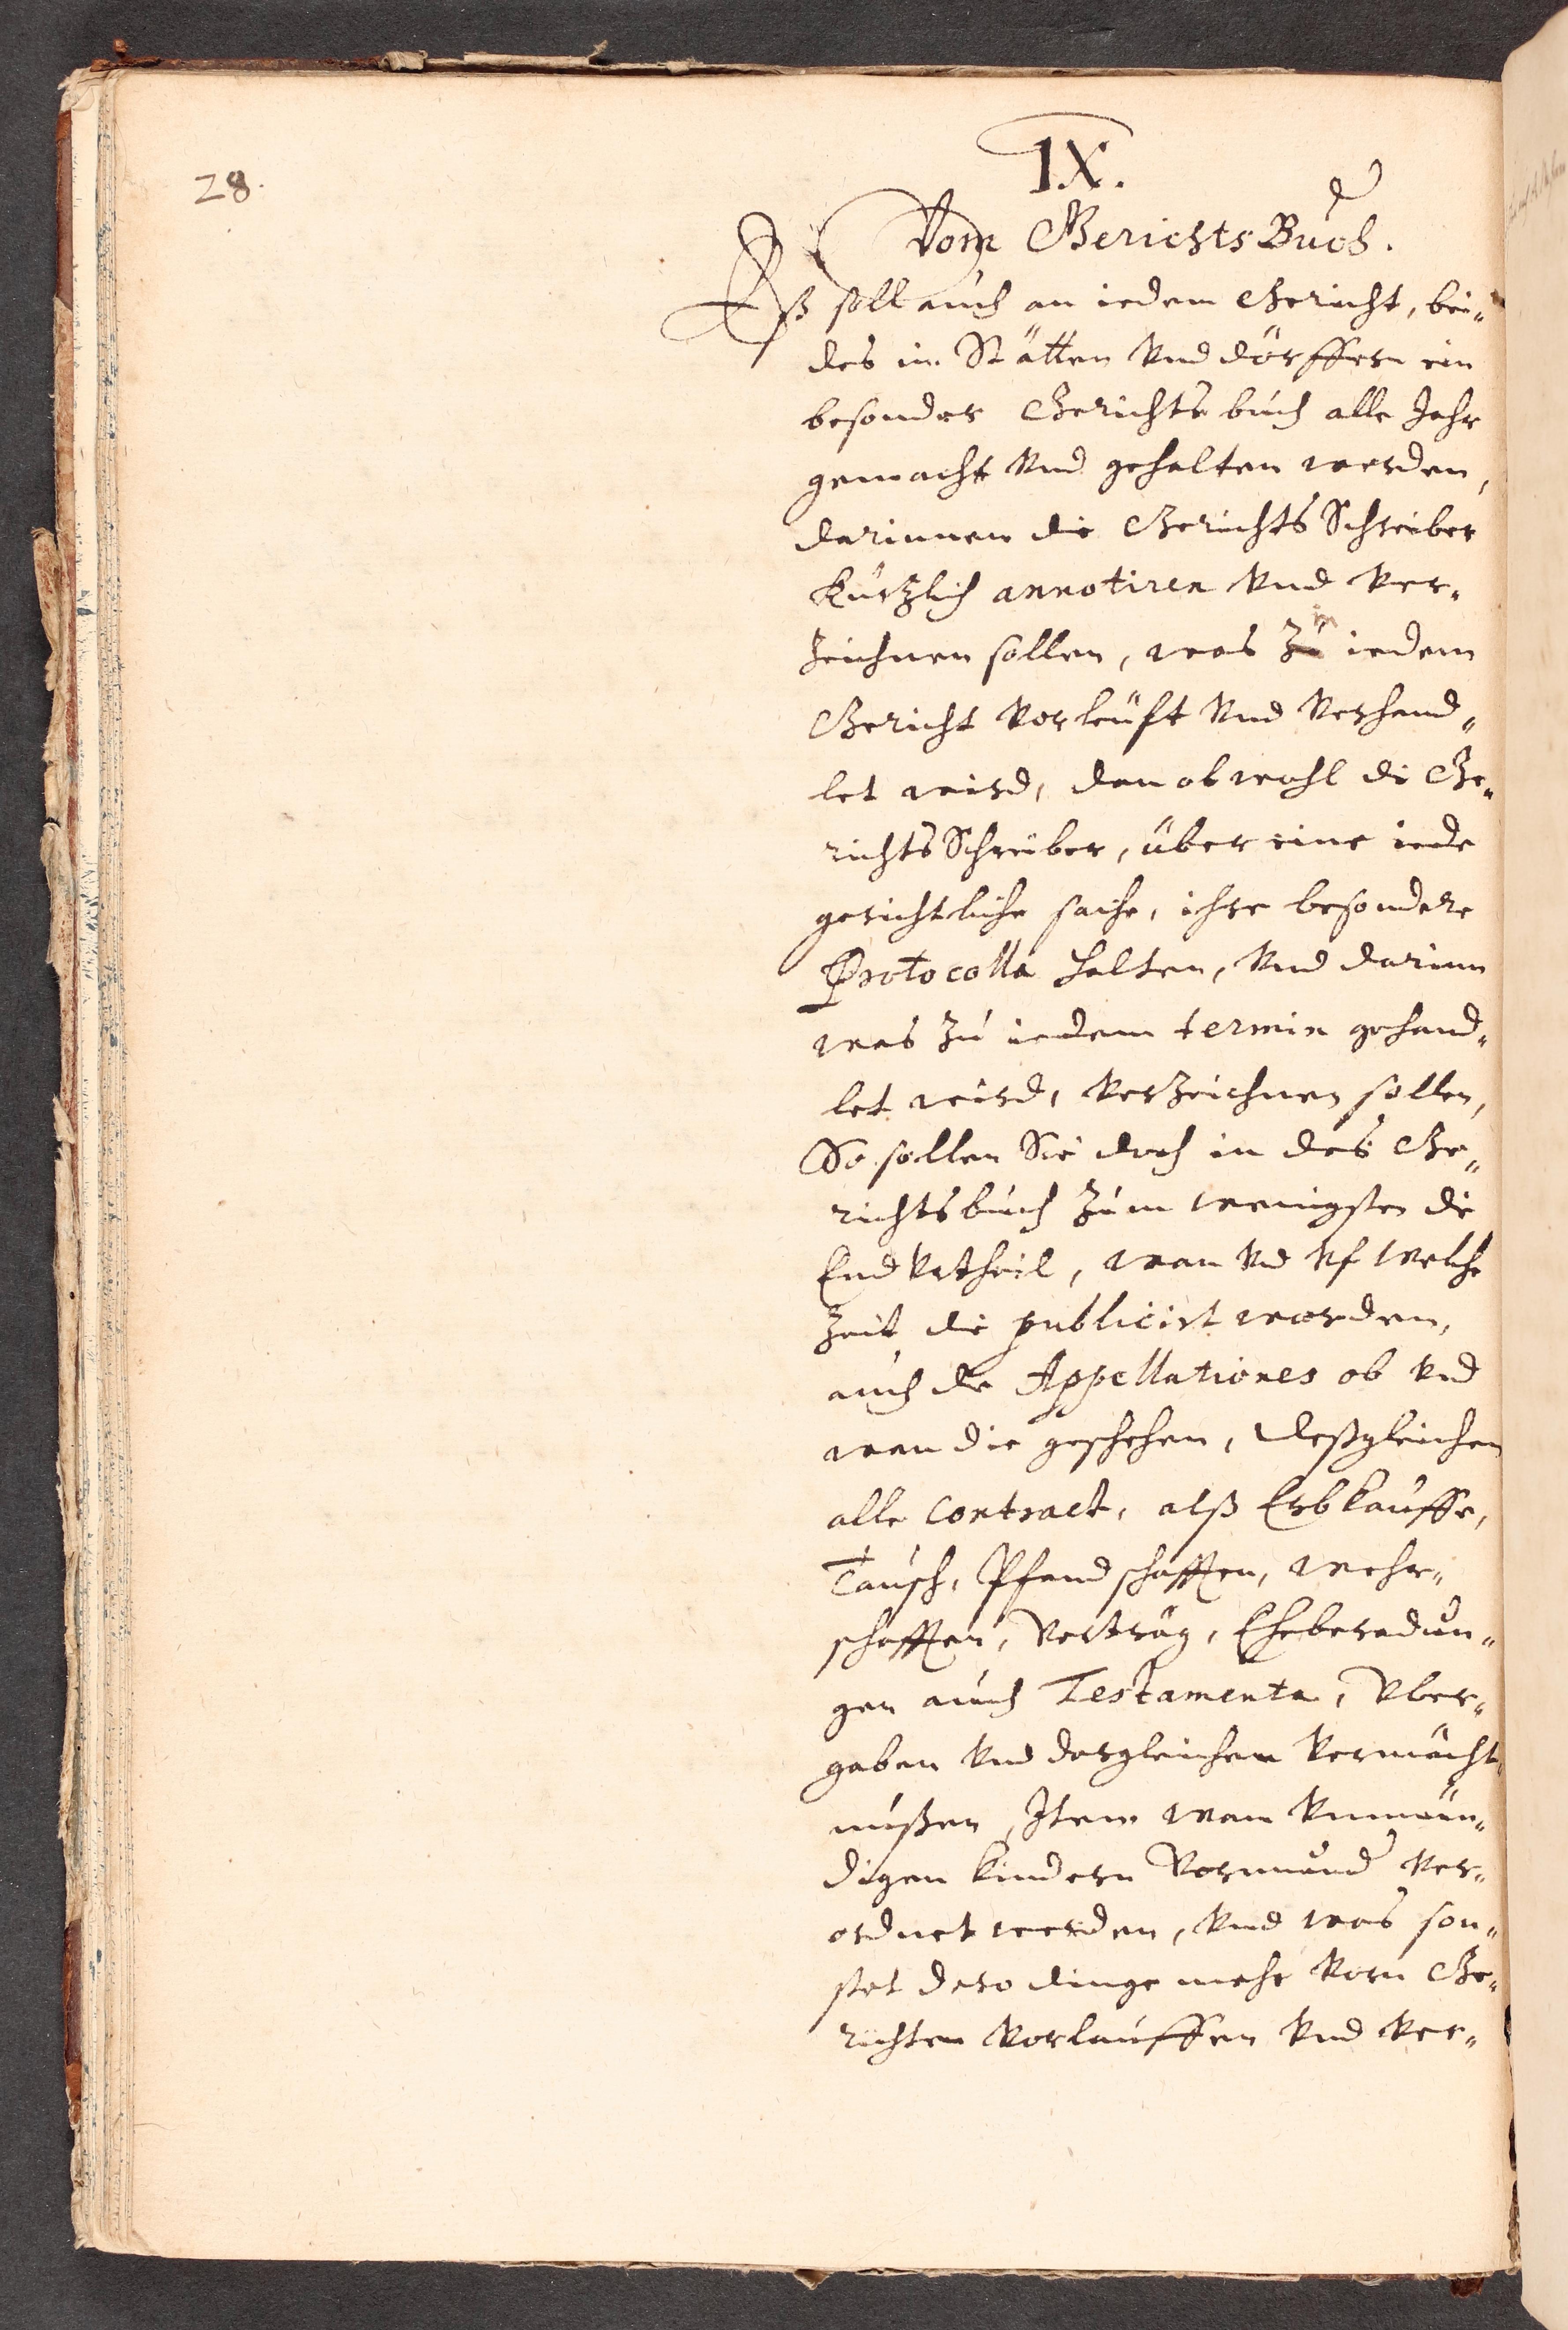 28.
IX.
Vom GerichtsBuch.
Eß soll auch an iedem Gericht, bei„
des in Stätten vnd dörffern ein
besonder Gerichts buch alle Jahr
gemacht vnd gehalten werden,
darinnen die Gerichts Schreiber
kürtzlich annotiren vnd ver„
zeichnen sollen, was in iedem
Gericht vorleüft vnd verhand„
let wird, dan obwohl die Ge„
richts Schreiber, über eine iede
gerichtliche sache, ihre besondere
Protocolla halten, vnd darinn
was zu iedem termin gehand„
let wird, verzeichnen sollen,
So sollen Sie doch in das Ge„
richtsbuch zum wenigsten die
End vrtheil, wan vnd vf welche
Zeit die publicirt worden,
auch die Appellationes ob vnd
wan die geschehen, deßgleichen
alle Contract, alß Erbkauffe,
Tausch, Pfandschafften, wehr„
schafften, Verträg, Eheberedun„
gen auch Testamenta, Vber„
gaben vnd dergleichen Vermächt„
nüßen, Item wan vnmün„
digen kindern Vormund ver„
ordnet werden, vnd was son„
stet dero dinge mehr vorn Ge„
richten vorlauffen vnd ver„